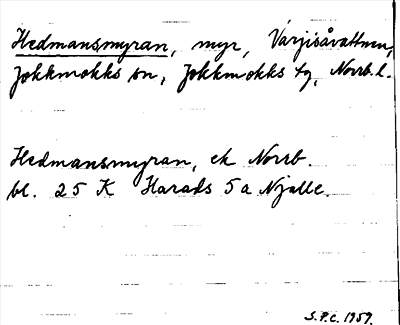 Hedmansmyran, myr, Varjisåvattnen,
Jokkmokks sn, Jokkmokks tg, Norrb.l.
Hedmansmyran, ek Norrb.
bl. 25 K Harads 5a Njalle.
S.P.C. 1959.